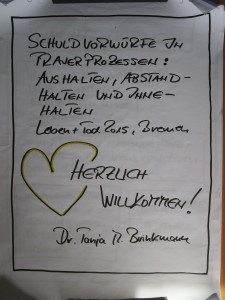 SCHULDVORWÜRFE IN
TRAUERPROZESSEN:
AUSHALTEN, ABSTAND-
HALTEN UND INNE-
HALTEN
Leben + Tod 2015, Bremen
HERZLICH
WILLKOMMEN!
Dr. Tanja M. Brinkmann